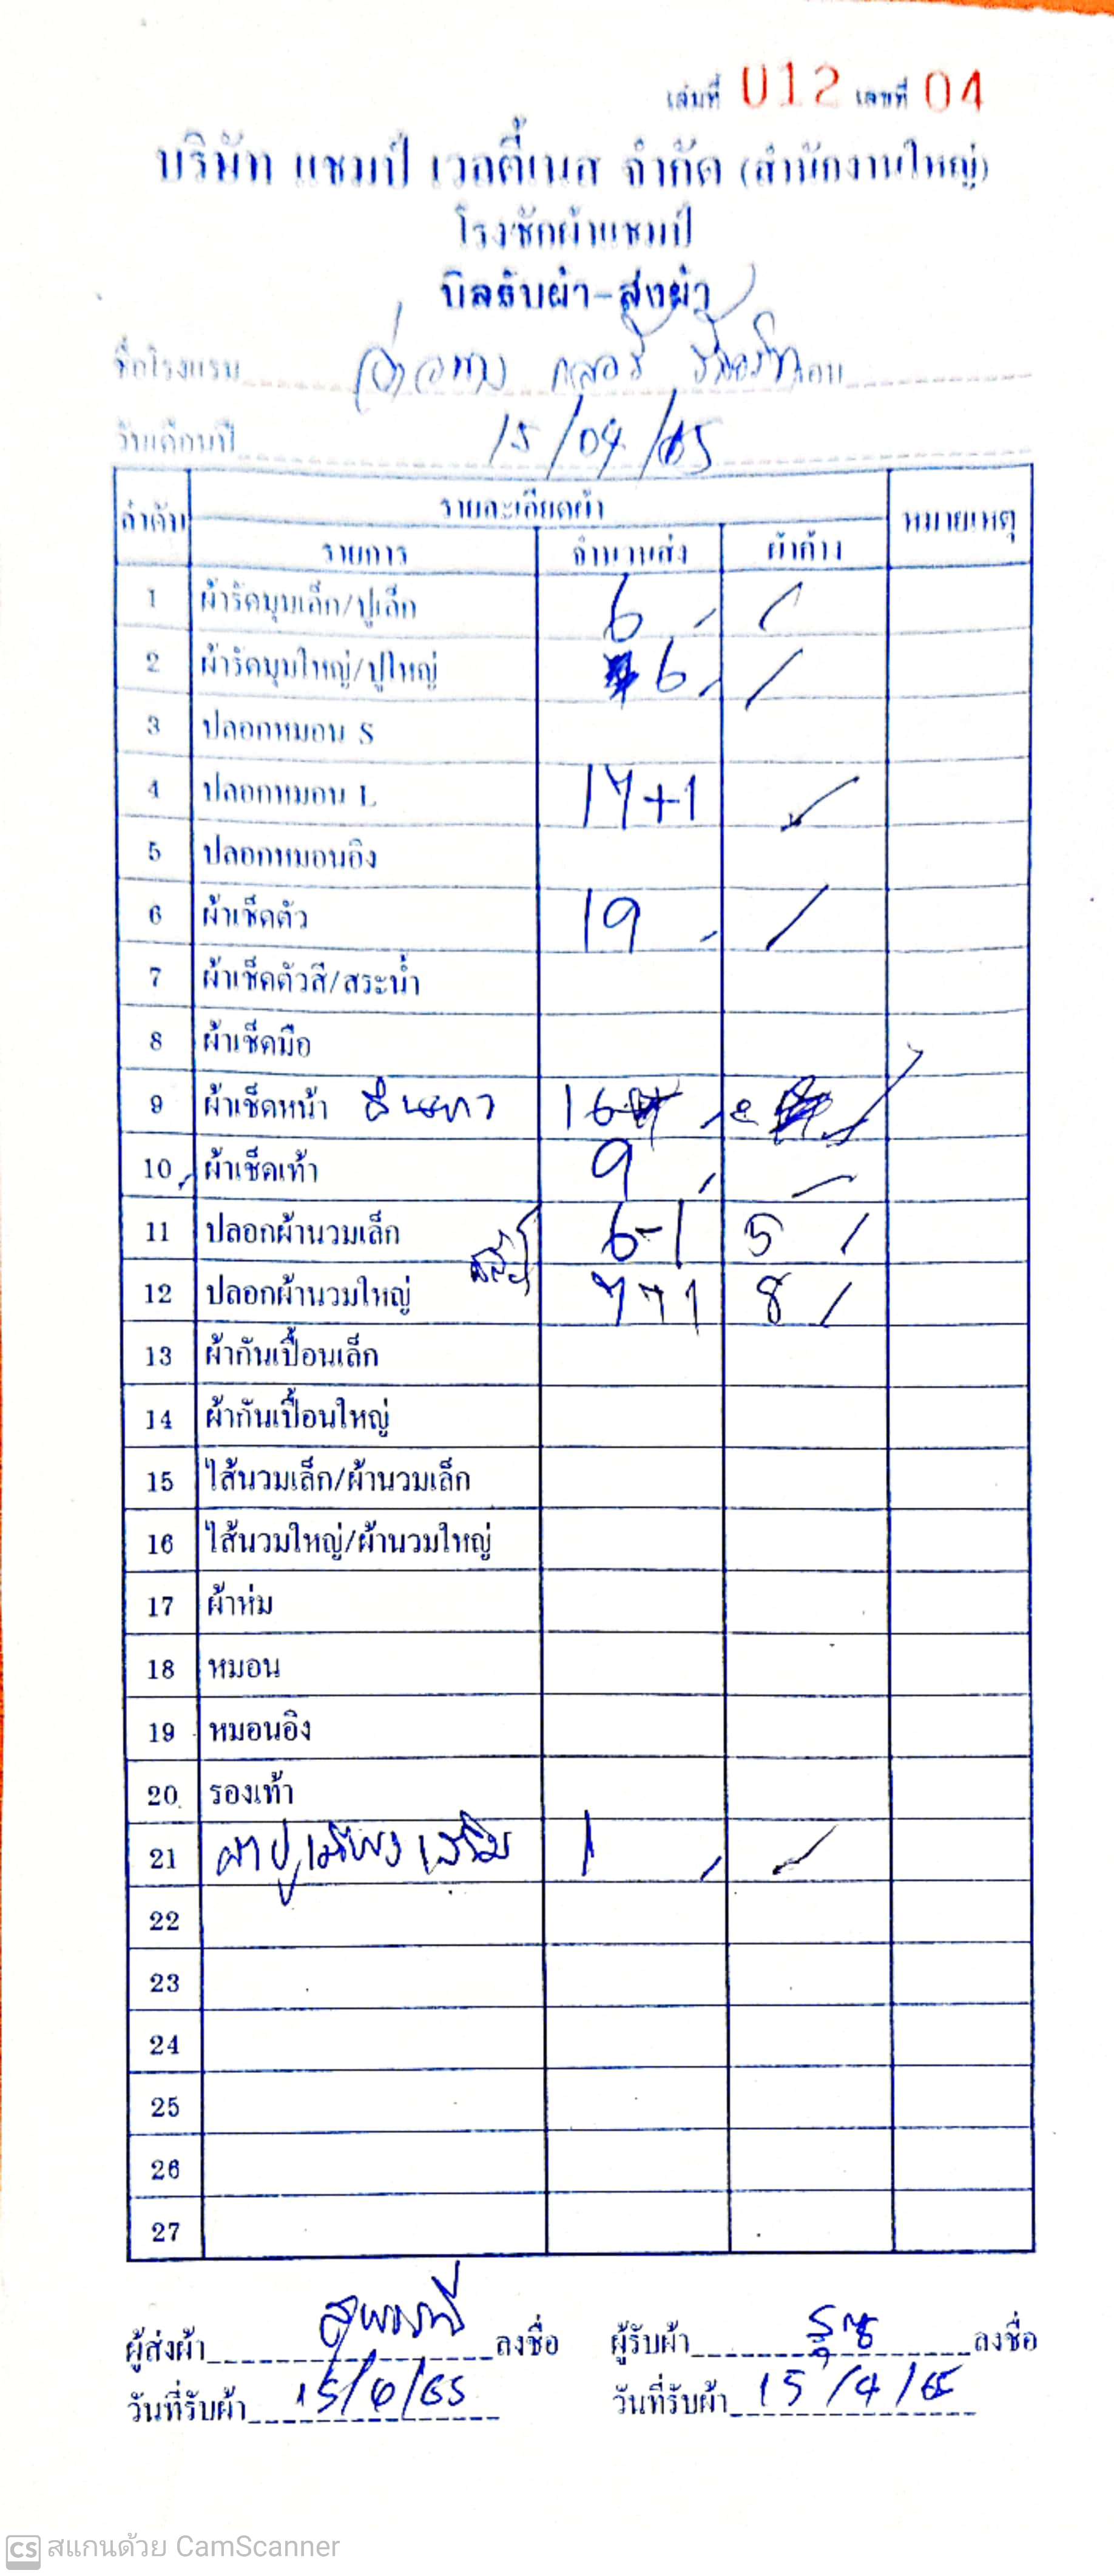 เล่มที่ 012 เลขที่ 04
บริษัท แชมป์ เวลตี้เนส จำกัด (สำนักงานใหญ่)
โรงซักผ้าแชมป์
บิลรับผ้า-ส่งผ้า
ชื่อโรงแรม
วันเดือนปี 15/04/65
ลำดับ รายละเอียดผ้า หมายเหตุ
รายการ จำนวนส่ง ผ้าค้าง
1 ผ้ารัดมุมเล็ก/ปูเล็ก 6
2 ผ้ารัดมุมใหญ่/ปูใหญ่ 6
3 ปลอกหมอน S
4 ปลอกหมอน L 17+1
5 ปลอกหมอนอิง
6 ผ้าเช็ดตัว 19
7 ผ้าเช็ดตัวสี/สระน้ำ
8 ผ้าเช็ดมือ
9 ผ้าเช็ดหน้า 16
10 ผ้าเช็ดเท้า 9
11 ปลอกผ้านวมเล็ก 6-1 5
12 ปลอกผ้านวมใหญ่ 7+1 8
13 ผ้ากันเปื้อนเล็ก
14 ผ้ากันเปื้อนใหญ่
15 ไส้นวมเล็ก/ผ้านวมเล็ก
16 ไส้นวมใหญ่/ผ้านวมใหญ่
17 ผ้าห่ม
18 หมอน
19 หมอนอิง
20 รองเท้า
21 ผ้าปูเตียงเสริม 1
22
23
24
25
26
27
ผู้ส่งผ้า ลงชื่อ ผู้รับผ้า ลงชื่อ
วันที่รับผ้า 15/4/65 วันที่รับผ้า 15/4/65
CS สแกนด้วย CamScanner